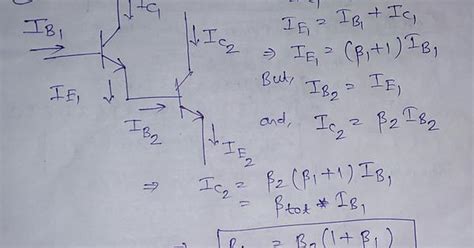 I_C1
I_B1
I_C2
I_E1
I_B2
I_E2
I_E1 = I_B1 + I_C1
⇒ I_E1 = (β1+1) I_B1
But, I_B2 = I_E1
and, I_C2 = β2 I_B2
⇒ I_C2 = β2 (β1+1) I_B1
= βtot * I_B1
= β2 (1+β1)